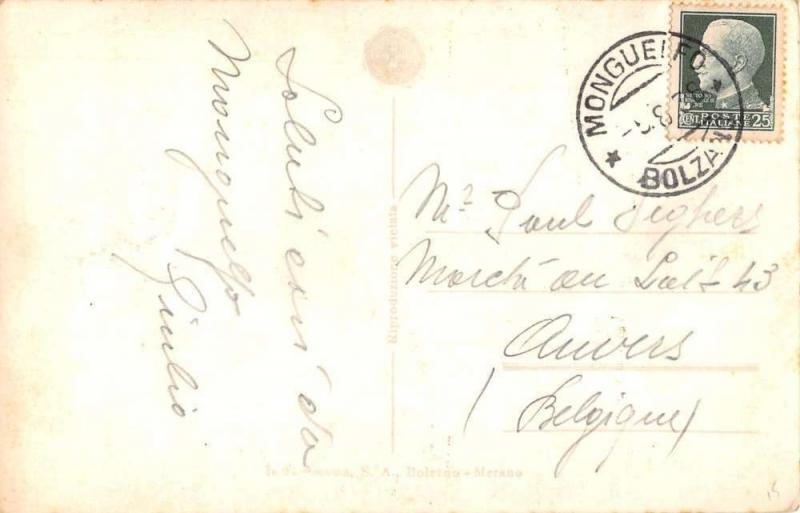 Saluti cari da
Monguelfo
Giulio
Riproduzione vietata
S. A., Bolzano - Merano
MONGUELFO
BOLZANO
POSTE
ITALIANE
CENT. 25
Mr Paul Seghers
Marché au Lait 43
Anvers
(Belgique)